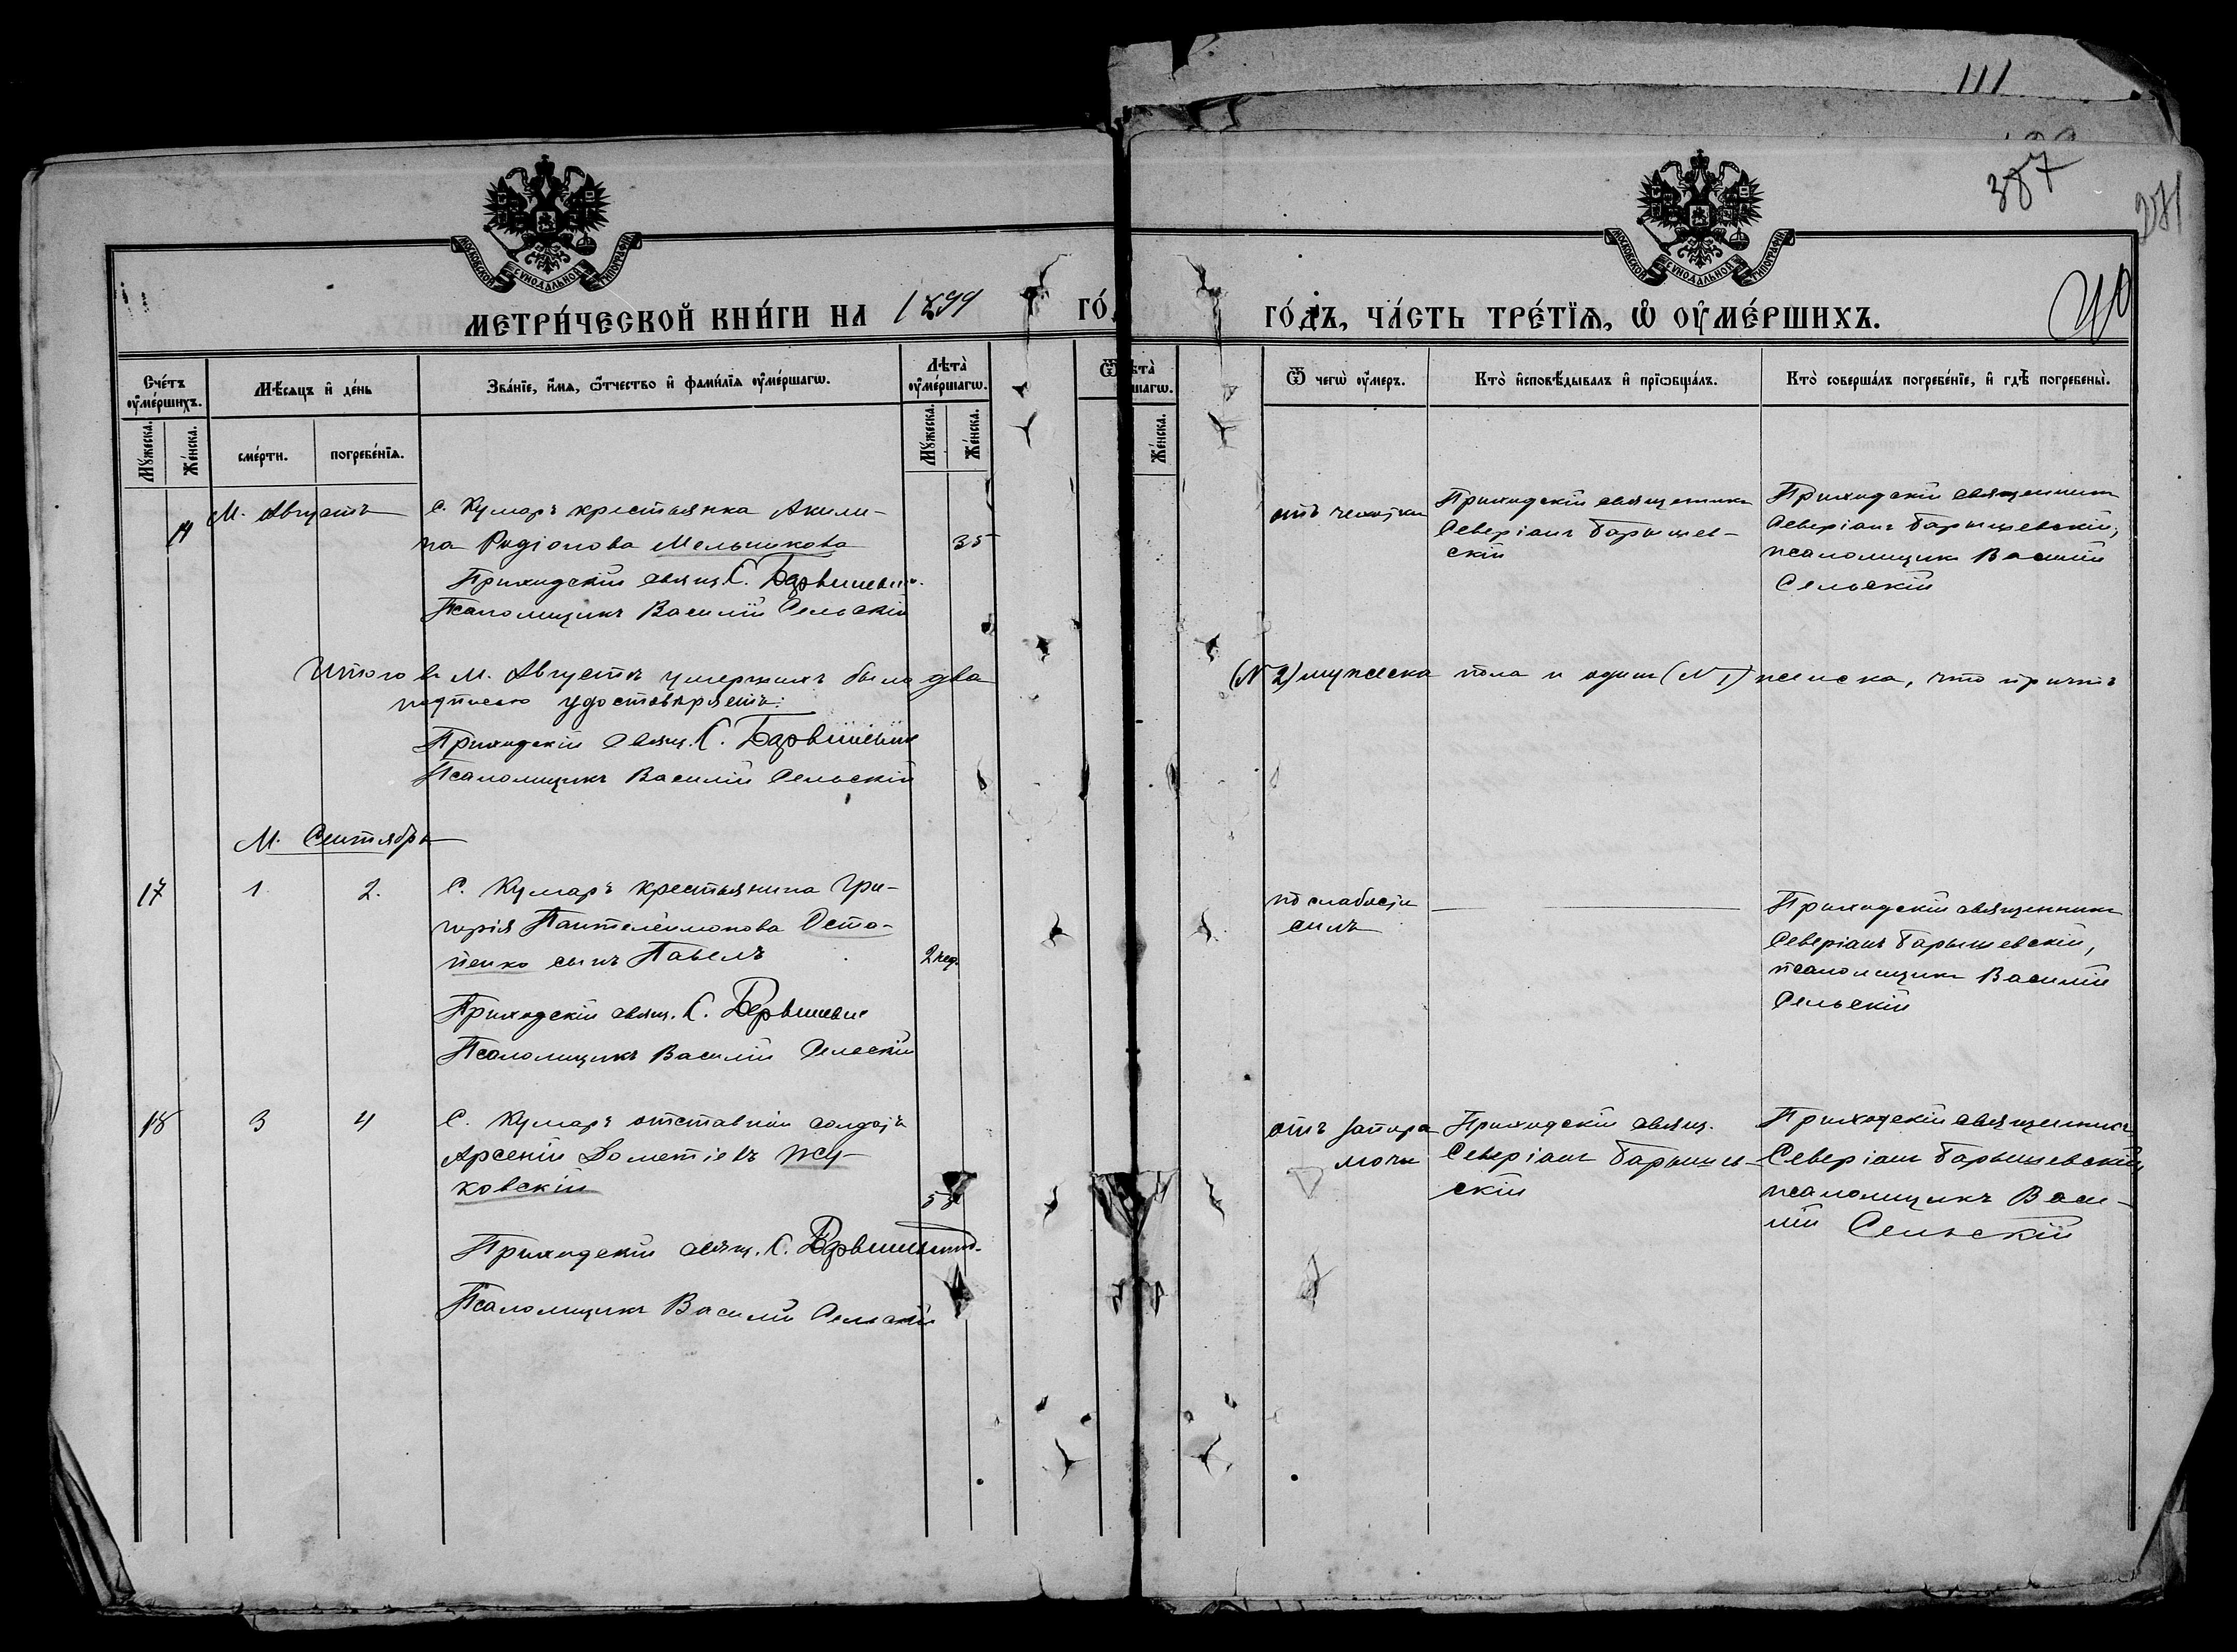 111
387
271
40
МОСКОВСКОЙ СѴНОДАЛЬНОЙ ТИПОГРАФІИ
МОСКОВСКОЙ СѴНОДАЛЬНОЙ ТИПОГРАФІИ
МЕТРИ́ЧЕСКОЙ КНИ́ГИ НА 1899 ГО́
ГО́ДЪ, ЧА́СТЬ ТРЕ́ТЇѦ, Ѡ҆ ОУ҆МЕ́РШИХЪ.
Сче́тъ оу҆ме́ршихъ.
Мꙋ́жеска.
Же́нска.
Мѣ́сѧцъ и҆ де́нь
сме́рти.
погребе́нїѧ.
Зва́нїе, и҆́мѧ, ѻ҆́тчество и҆ фами́лїѧ оу҆ме́ршагѡ.
Лѣ́та оу҆ме́ршагѡ.
Мꙋ́жеска.
Же́нска.
Же́нска.
Ѿ чегѡ̀ оу҆́меръ.
Кто̀ и҆сповѣ́дывалъ и҆ прїѡбща́лъ.
Кто̀ соверша́лъ погребе́нїе, и҆ гдѣ̀ погребены̀.
М. Августъ
С. Кумаръ крестьянка Акили-
на Родіонова Мельникова 35
Приходскій свящ. С. Барышевскій
Псаломщикъ Василій Сельскій
отъ чахотки
Приходскій священникъ
Северіанъ Барышев-
скій
Приходскій священникъ
Северіанъ Барышевскій,
псаломщикъ Василій
Сельскій
Итого въ М. Августѣ умершихъ было два (N 2) мужеска пола и одинъ (N 1) женска, что причтъ
подписью удостовѣряетъ:
Приходскій свящ. С. Барышевскій
Псаломщикъ Василій Сельскій
М. Сентябрь
17 1 2. С. Кумаръ крестьянина Гри-
горія Пантелеимонова Оста-
пенко сынъ Павелъ 2 нед.
Приходскій свящ. С. Барышевскій
Псаломщикъ Василій Сельскій
по слабости
силъ
Приходскій священникъ
Северіанъ Барышевскій,
псаломщикъ Василій
Сельскій
18 3 4 С. Кумаръ отставной солдатъ
Арсеній Дометіевъ Жу-
ковскій
Приходскій свящ. С. Барышевскій
Псаломщикъ Василій Сельскій
отъ запора
мочи
Приходскій свящ.
Северіанъ Барышев-
скій
Приходскій священникъ
Северіанъ Барышевскій
псаломщикъ Васи-
лій Сельскій